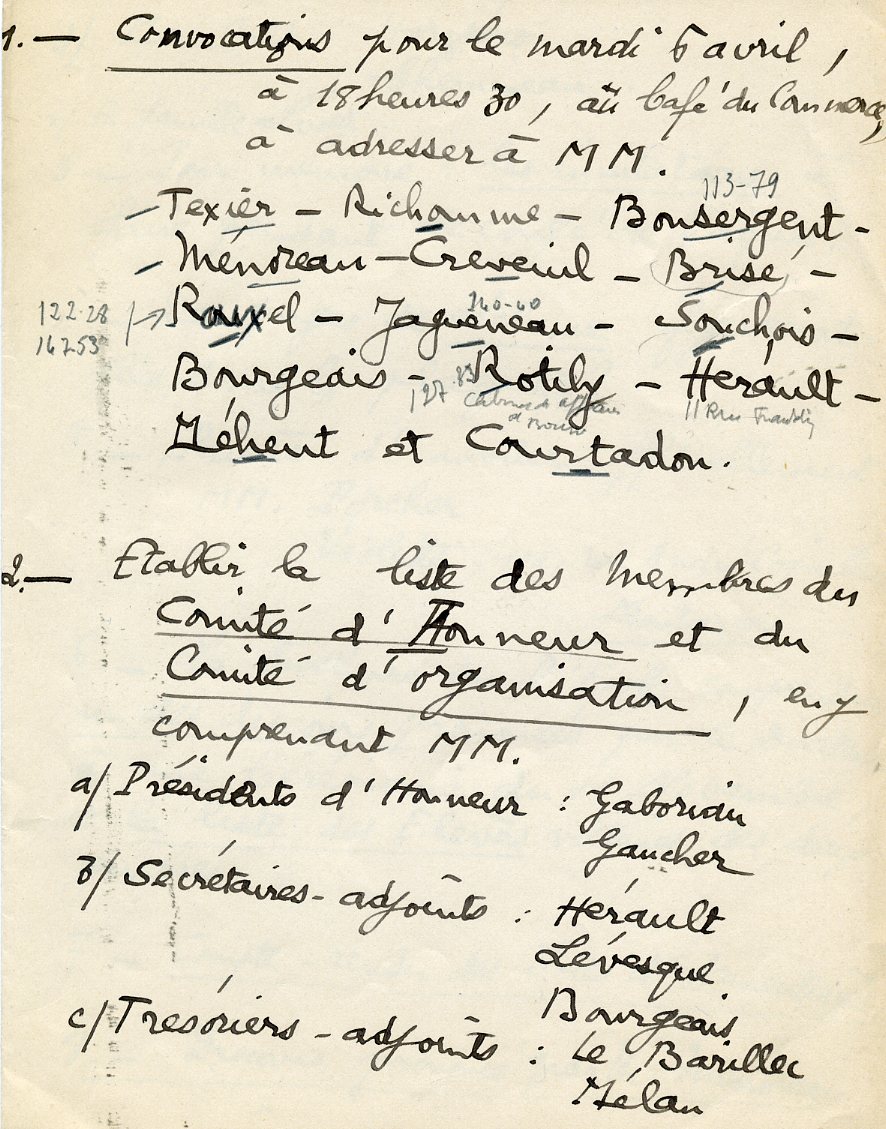 1. — Convocations pour le mardi 6 avril,
à 18 heures 30, au Café du Commerce,
à adresser à MM.
113-79
— Texier — Richomme — Bonsergent —
— Ménoreau — Creveuil — Brisé —
122-28
167-53
Rouxel — Jagueneau — Souchois —
140-40
Bourgeais — Rotily — Hérault —
127-83
Cabinet
11 Rue Franklin
Méhent et Courtadon.
2. — Etablir la liste des membres du
Comité d'Honneur et du
Comité d'organisation, en y
comprenant MM.
a/ Présidents d'Honneur : Gaboriau
Gaucher
b/ Secrétaires-adjoints : Hérault
Lévesque
Bourgeais
c/ Trésoriers-adjoints : Le Barillec
Mélan